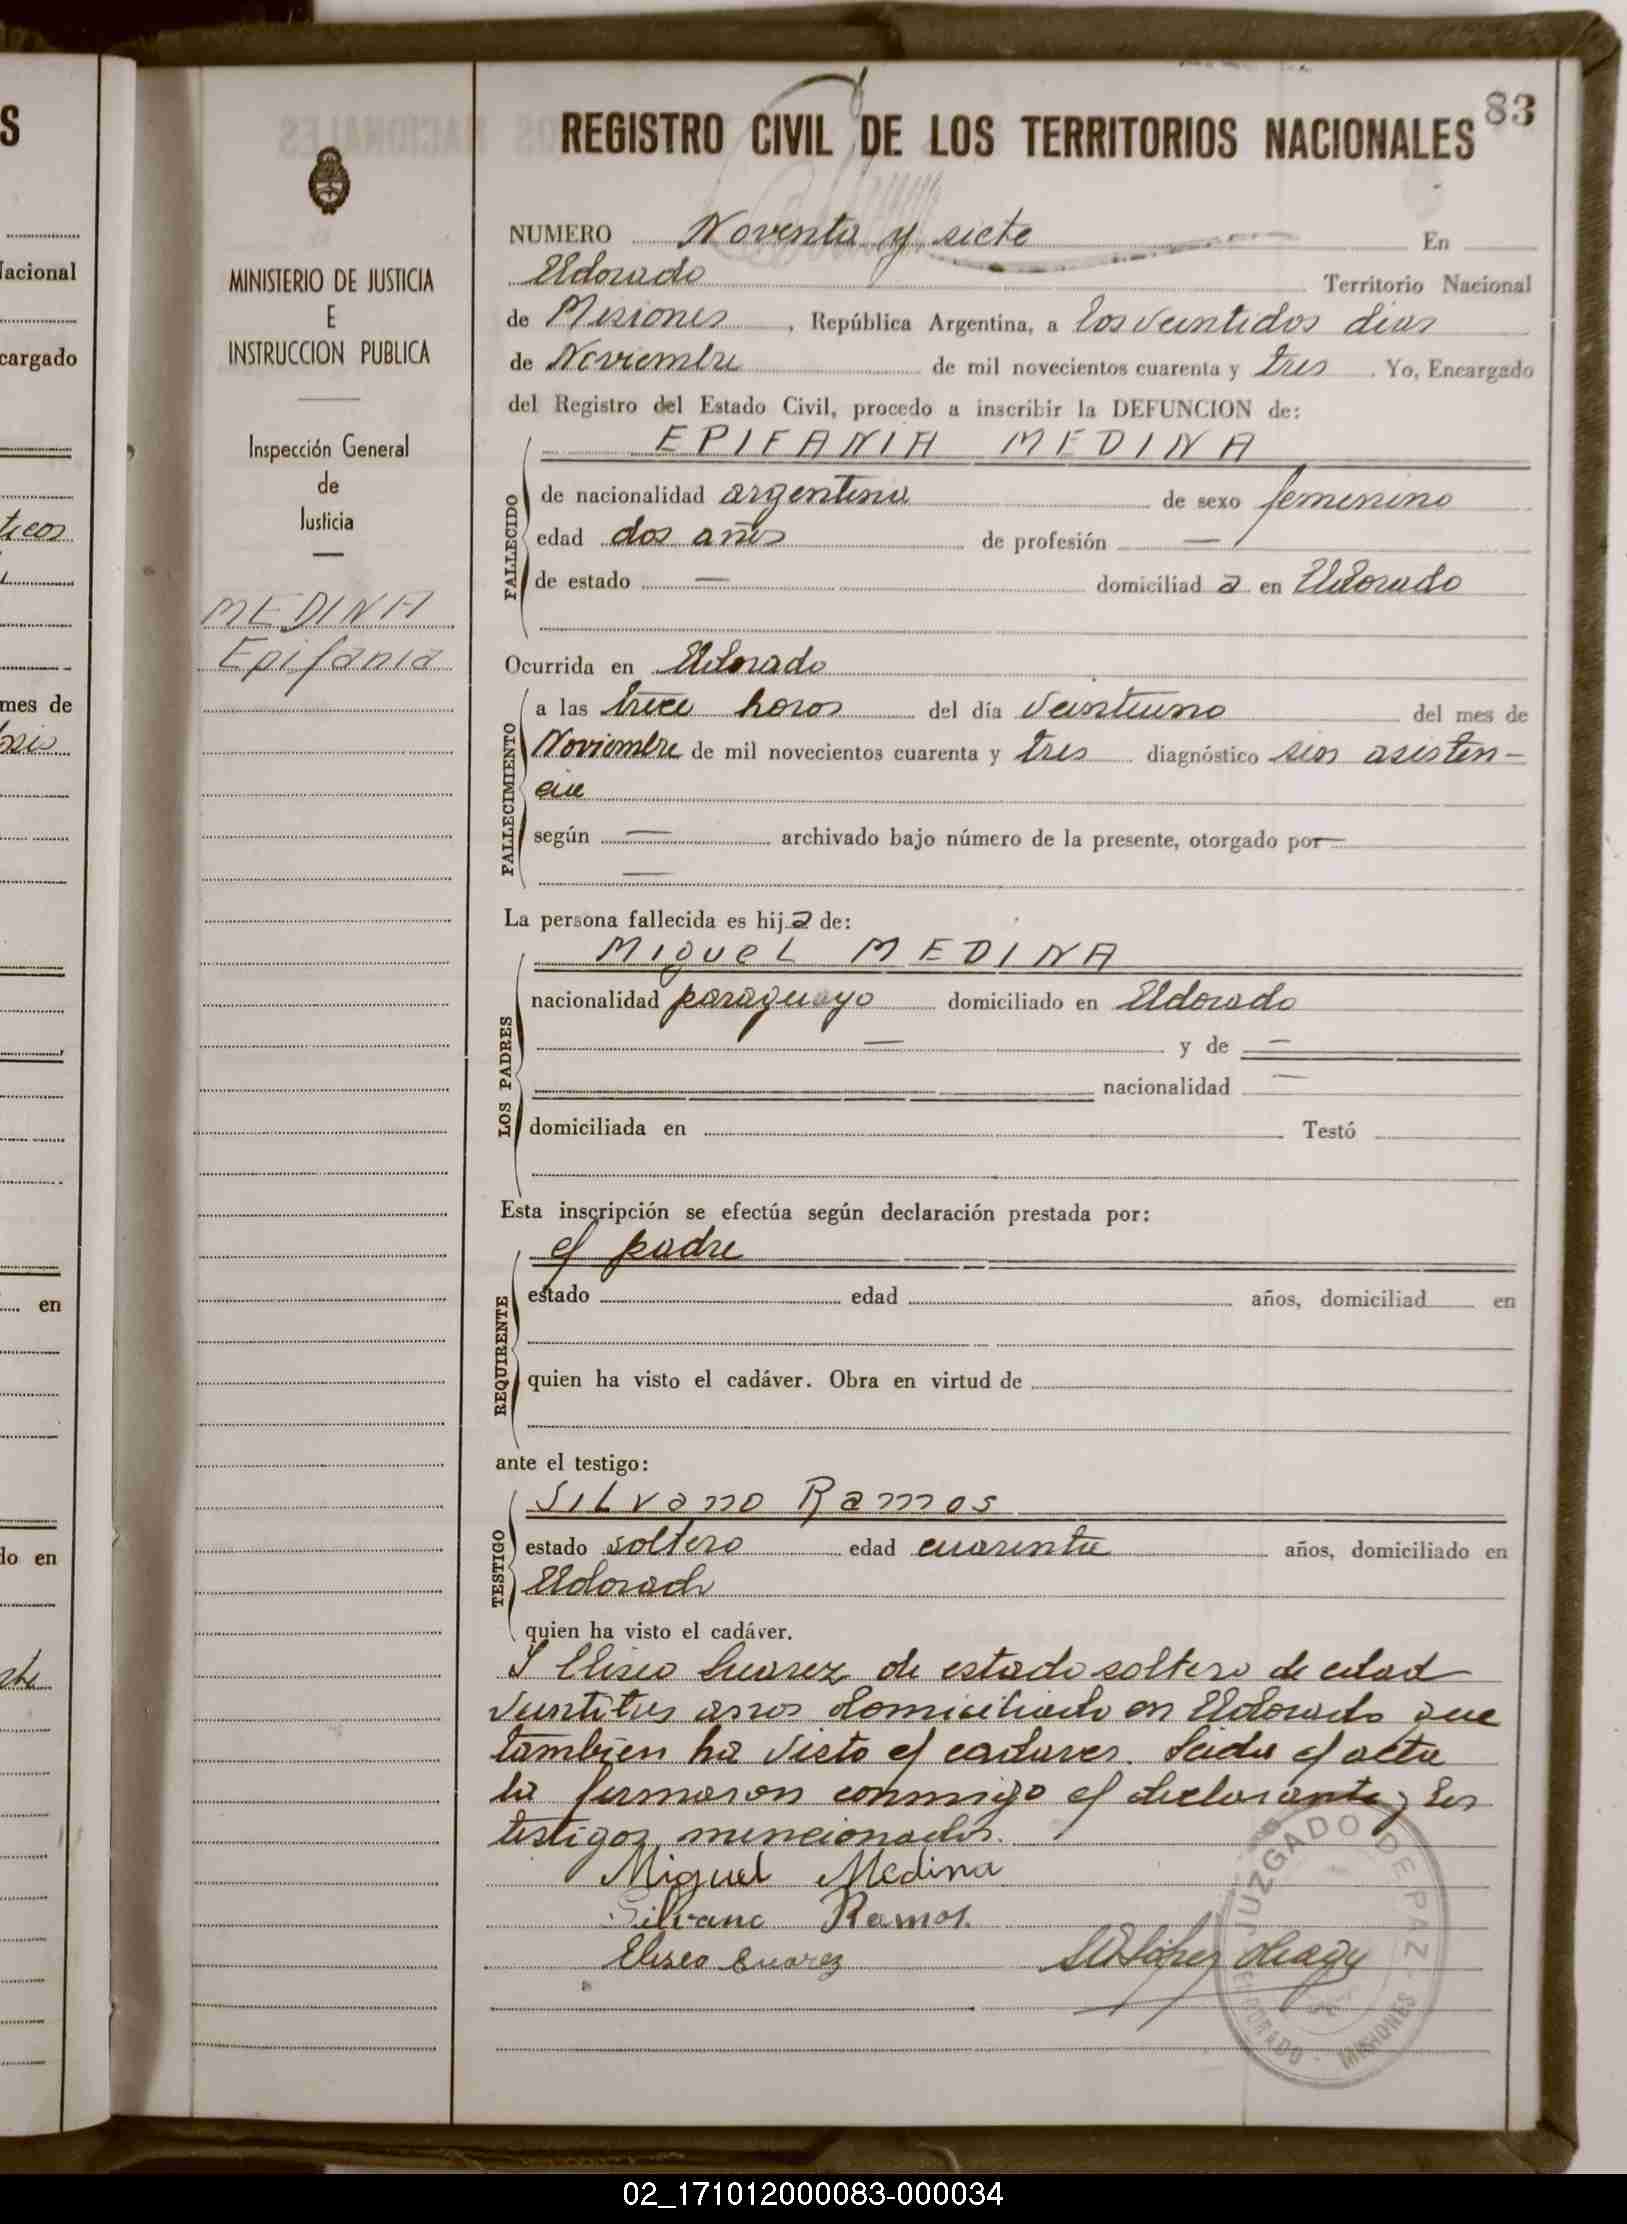 S
Nacional
cargado
ticos
mes de
en
do en
MINISTERIO DE JUSTICIA
E
INSTRUCCION PUBLICA
Inspección General
de
Justicia
MEDINA
Epifania
83
REGISTRO CIVIL DE LOS TERRITORIOS NACIONALES
NUMERO Noventa y siete En
Eldorado Territorio Nacional
de Misiones, República Argentina, a los veintidos dias
de Noviembre de mil novecientos cuarenta y tres. Yo, Encargado
del Registro del Estado Civil, procedo a inscribir la DEFUNCION de:
EPIFANIA MEDINA
FALLECIDO
de nacionalidad argentina de sexo femenino
edad dos años de profesión —
de estado — domiciliad a en Eldorado
Ocurrida en Eldorado
FALLECIMIENTO
a las trece horas del día veintiuno del mes de
Noviembre de mil novecientos cuarenta y tres diagnóstico sin asisten-
cia
según — archivado bajo número de la presente, otorgado por —
—
La persona fallecida es hij a de:
LOS PADRES
Miguel MEDINA
nacionalidad paraguayo domiciliado en Eldorado
— y de —
nacionalidad —
domiciliada en Testó
Esta inscripción se efectúa según declaración prestada por:
REQUIRENTE
el padre
estado edad años, domiciliad en
quien ha visto el cadáver. Obra en virtud de
ante el testigo:
TESTIGO
Silvano Ramos
estado soltero edad cuarenta años, domiciliado en
Eldorado
quien ha visto el cadáver.
Y Eliseo Suarez de estado soltero de edad
veintitres años domiciliado en Eldorado que
tambien ha visto el cadaver. Leida el acta
la firmaron conmigo el declarante y los
testigos mencionados.
Miguel Medina
Silvano Ramos
Eliseo Suarez
JUZGADO DE PAZ
ELDORADO - MISIONES
02_171012000083-000034